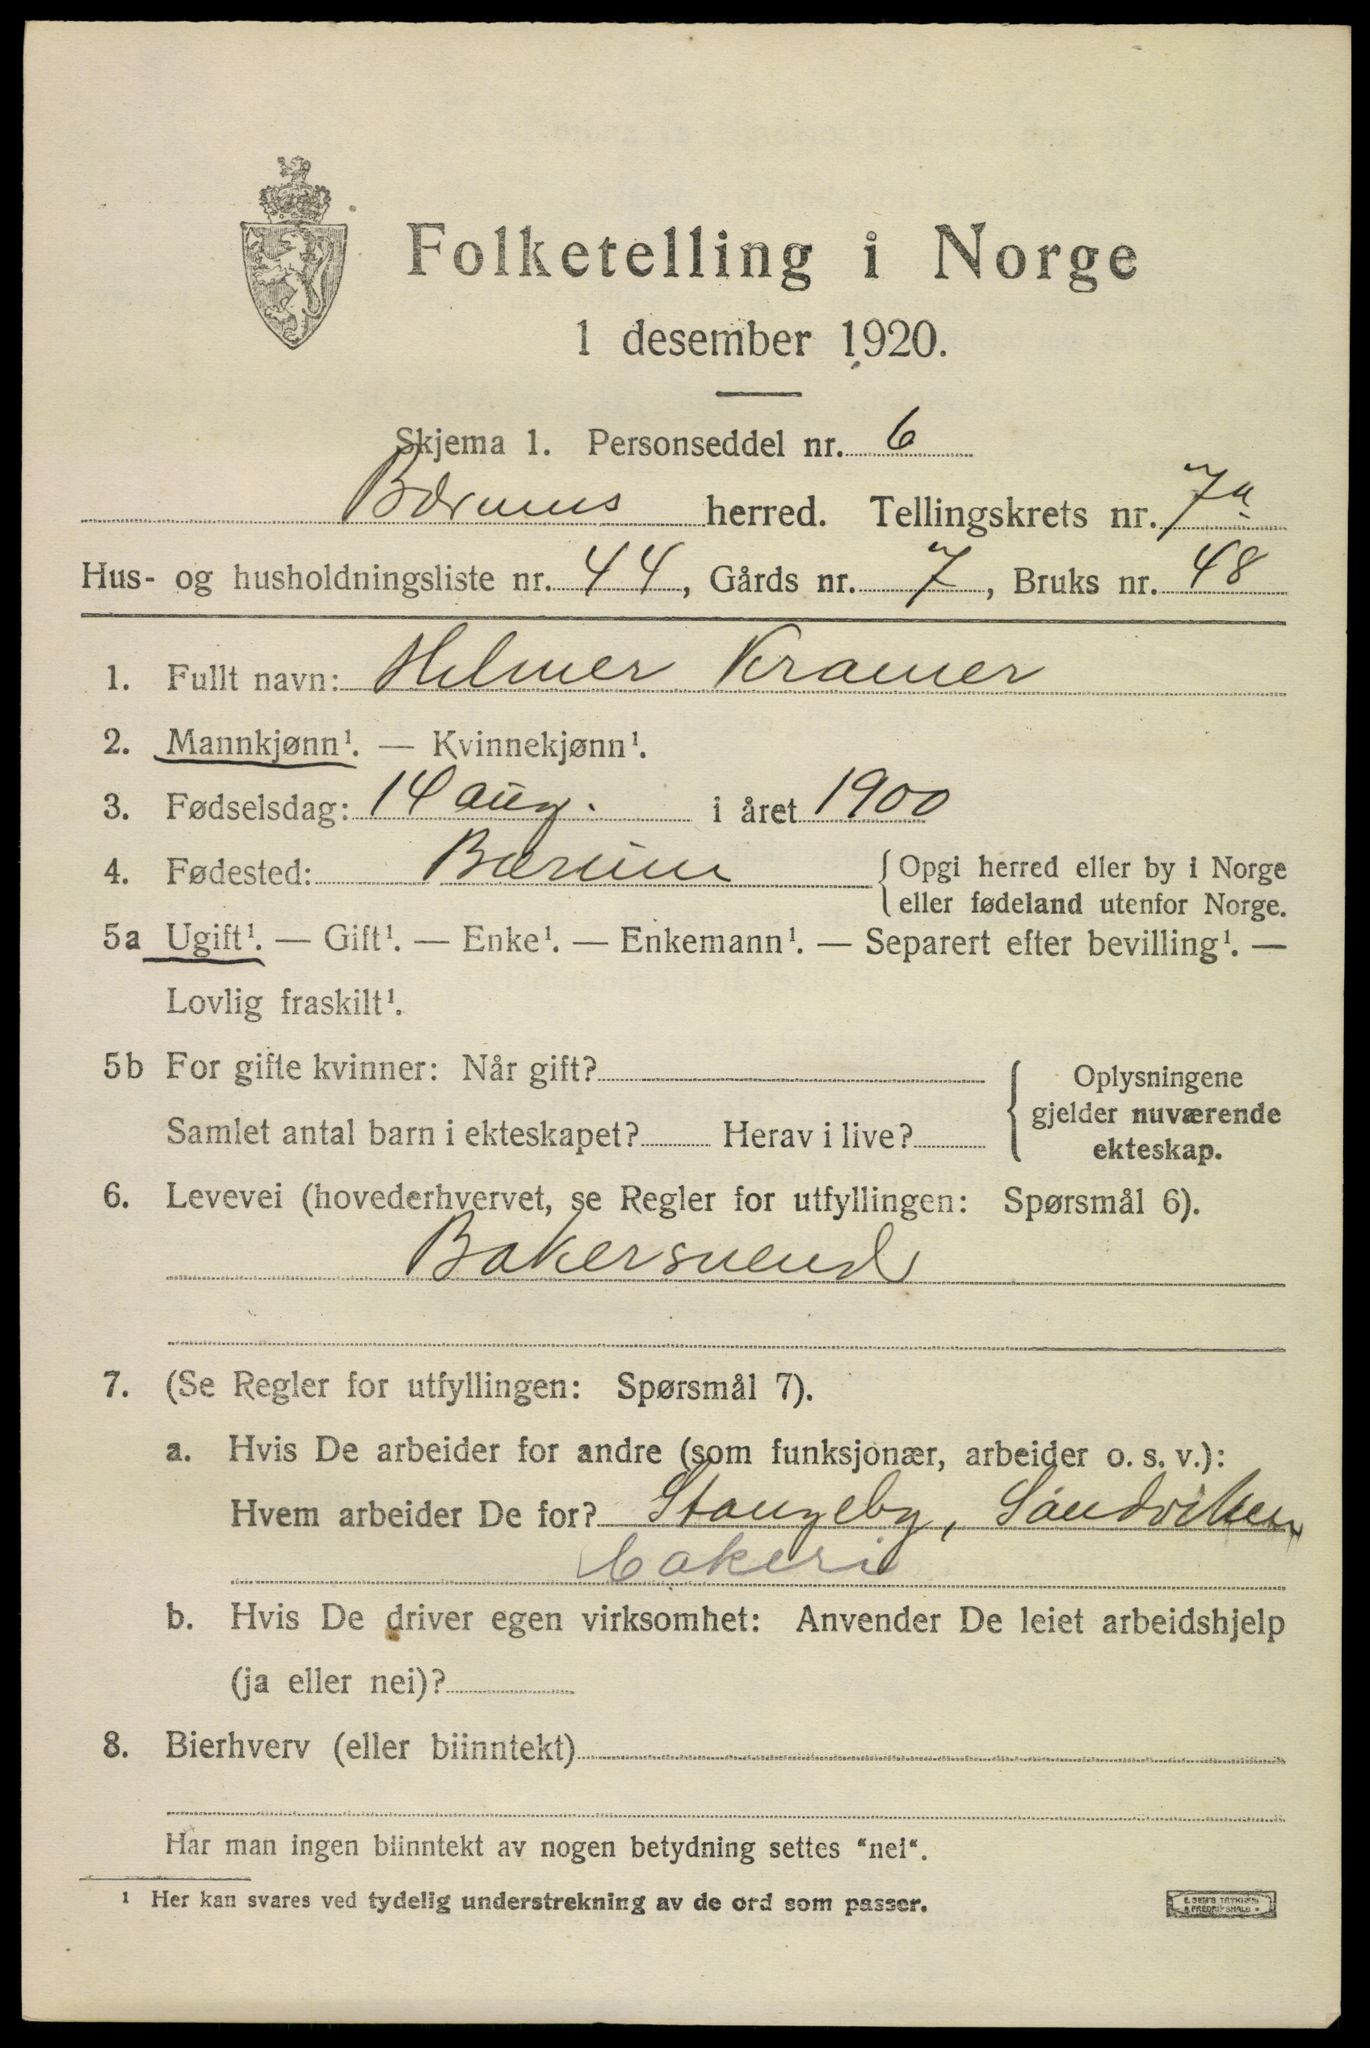 Folketelling i Norge
1 desember 1920.
Skjema 1. Personseddel nr. 6
Bærums herred. Tellingskrets nr. 7a
Hus- og husholdningsliste nr. 44, Gårds nr. 7, Bruks nr. 48
1. Fullt navn: Hilmer Kramer
2. Mannkjønn¹. — Kvinnekjønn¹.
3. Fødselsdag: 14 aug. i året 1900
4. Fødested: Bærum {Opgi herred eller by i Norge
eller fødeland utenfor Norge.
5a Ugift¹. — Gift¹. — Enke¹. — Enkemann¹. — Separert efter bevilling¹. —
Lovlig fraskilt¹.
5b For gifte kvinner: Når gift? { Oplysningene
gjelder nuværende
Samlet antal barn i ekteskapet? Herav i live?
ekteskap.
6. Levevei (hovederhvervet, se Regler for utfyllingen: Spørsmål 6).
Bakersvend
7. (Se Regler for utfyllingen: Spørsmål 7).
a. Hvis De arbeider for andre (som funksjonær, arbeider o. s. v.):
Hvem arbeider De for? Stangeby, Sandviken
bakeri
b. Hvis De driver egen virksomhet: Anvender De leiet arbeidshjelp
(ja eller nei)?
8. Bierhverv (eller biinntekt)
Har man ingen biinntekt av nogen betydning settes "nei".
¹ Her kan svares ved tydelig understrekning av de ord som passer.